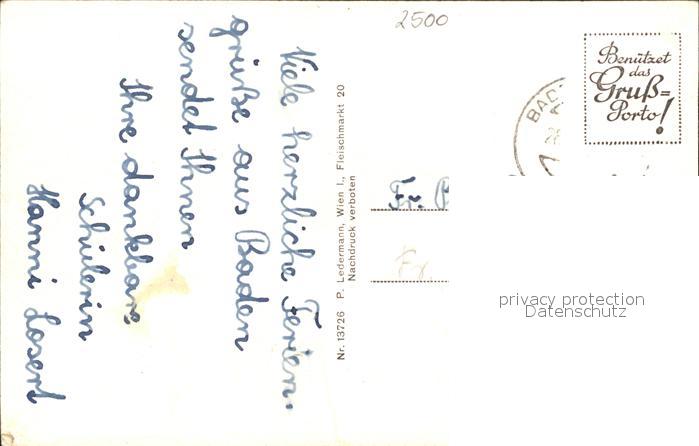 2500
Benützet
das
Gruß=
Porto!
BAD
Viele herzliche Ferien-
grüße aus Baden
sendet Ihnen
Ihre dankbare
Schülerin
Hanni Losert
Nr. 13726 P. Ledermann, Wien I., Fleischmarkt 20
Nachdruck verboten
Fr.
Fr.
privacy protection
Datenschutz